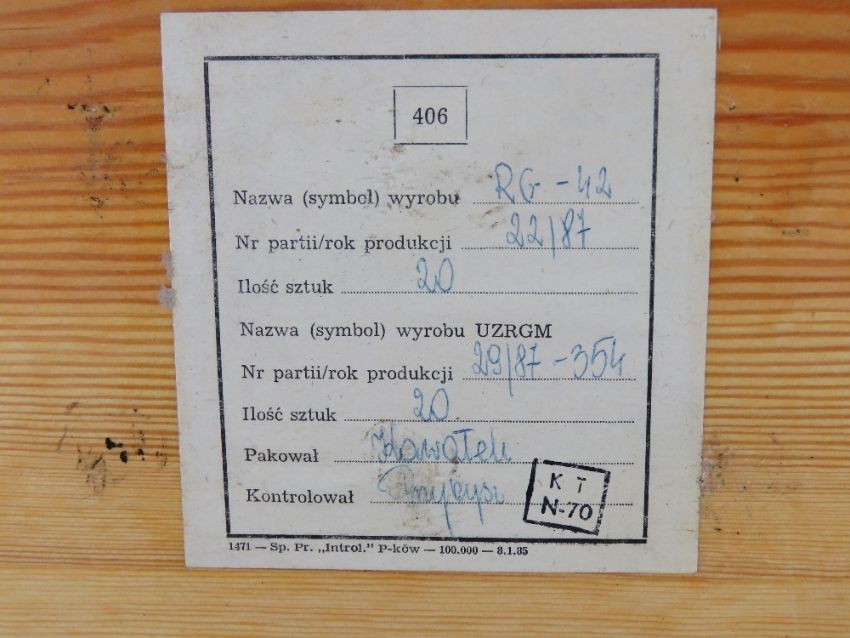 406
Nazwa (symbol) wyrobu RG-42
Nr partii/rok produkcji 22/87
Ilość sztuk 20
Nazwa (symbol) wyrobu UZRGM
Nr partii/rok produkcji 29/87-354
Ilość sztuk 20
Pakował
Kontrolował
K T
N-70
1471 — Sp. Pr. „Introl.” P-ków — 100.000 — 8.1.85